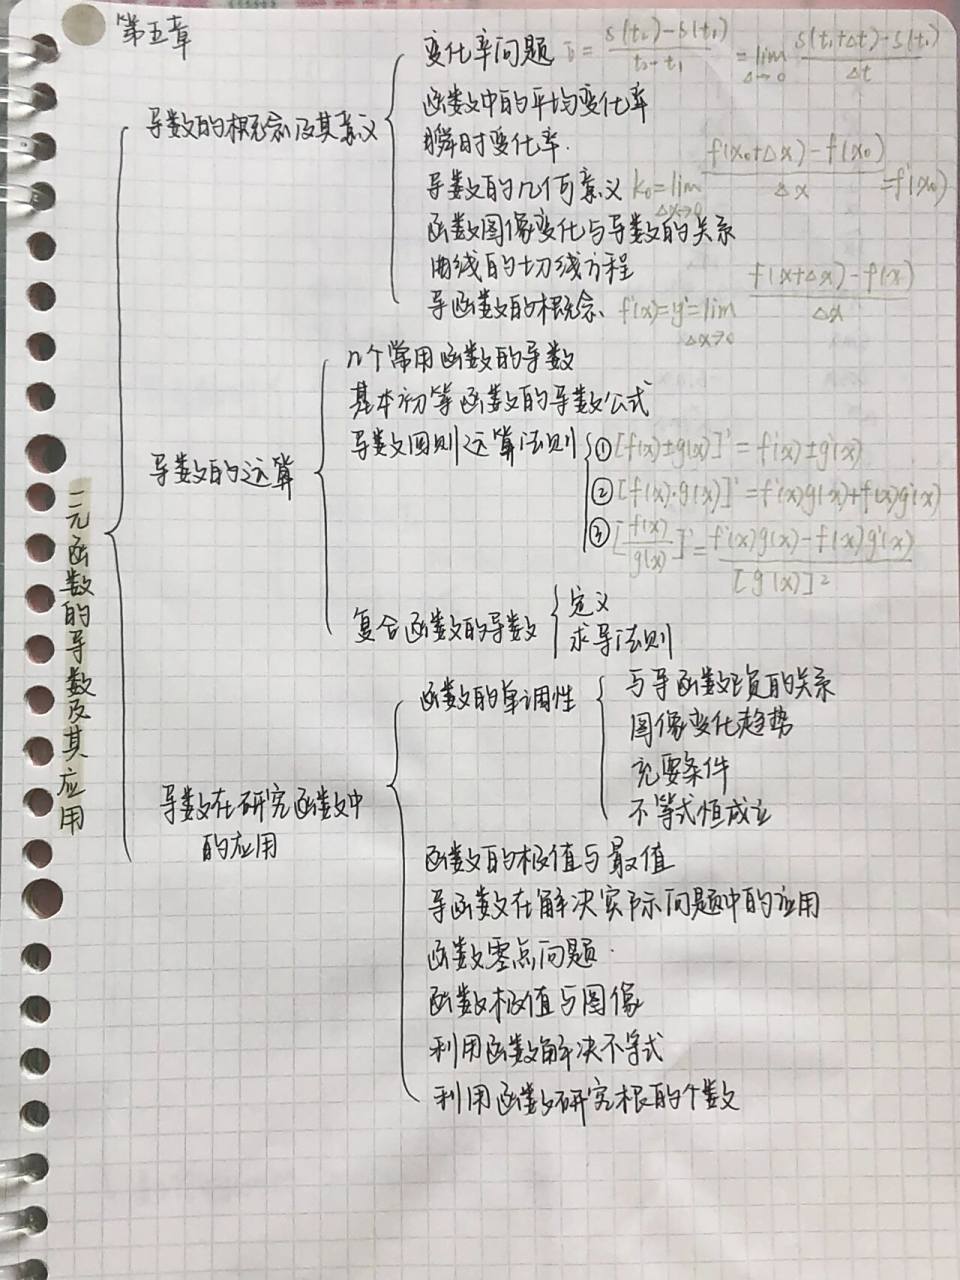 第五章
一元函数的导数及其应用
导数的概念及其意义
变化率问题 v̄ = (s(t₂)-s(t₁))/(t₂-t₁) = lim Δ→0 (s(t₁+Δt)-s(t₁))/Δt
函数中的平均变化率
瞬时变化率.
导数的几何意义 k₀=lim Δx→0 (f(x₀+Δx)-f(x₀))/Δx =f'(x₀)
函数图像变化与导数的关系
曲线的切线方程
导函数的概念、 f'(x)=y'=lim Δx→0 (f(x+Δx)-f(x))/Δx
导数的运算
几个常用函数的导数
基本初等函数的导数公式
导数四则运算法则
① [f(x)±g(x)]' = f'(x)±g'(x)
② [f(x)·g(x)]' = f'(x)g(x)+f(x)g'(x)
③ [f(x)/g(x)]' = (f'(x)g(x)-f(x)g'(x))/[g(x)]²
复合函数的导数
定义
求导法则
导数在研究函数中
的应用
函数的单调性
与导函数正负的关系
图像变化趋势
充要条件
不等式恒成立
函数的极值与最值
导函数在解决实际问题中的应用
函数零点问题.
函数极值与图像
利用函数解决不等式
利用函数研究根的个数